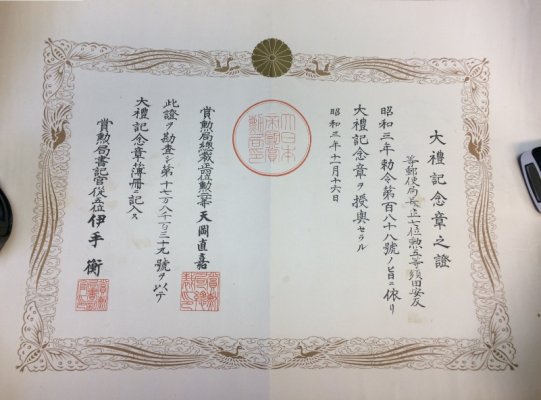 大禮記念章之證
等郵便局長正七位勲五等須田安友
昭和三年勅令第百八十八號ノ旨ニ依リ
大禮記念章ヲ授與セラル
昭和三年十一月十六日
大日本帝國賞勲局印
賞勲局總裁正 天岡直嘉
此證ヲ勘査シ第十七万八千百三十九號ヲ以テ
大禮記念章簿冊ニ記入ス
賞勲局書記官從五位 伊手衡